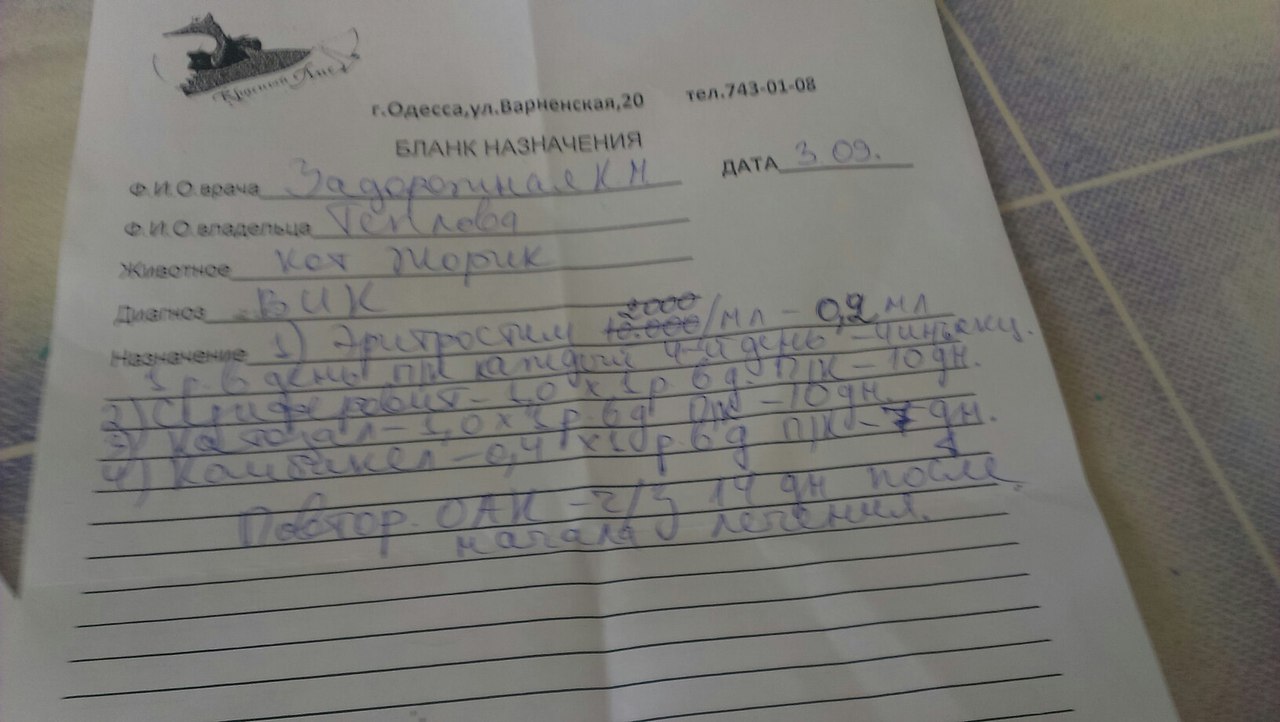 г.Одесса,ул.Варненская,20 тел.743-01-08
БЛАНК НАЗНАЧЕНИЯ
ДАТА 3 09.
Ф.И.О.врача Задорожная К Н
Ф.И.О.владельца Теплова
Животное Кот Жорик
Диагноз ВИК
Назначение 1) Эритростим 10.000 2000/мл - 0,2 мл
1 р. в день п/к каждый 4-й день - 4 инъекц.
2) - 1,0 x 1 р. в д. п/к - 10 дн.
3) Катозал - 1,0 x 1 р. в д п/к - 10 дн.
4) - 0,4 x 1 р. в д п/к - 7 дн.
Повтор. ОАК - ч/з 14 дн после
начала лечения.